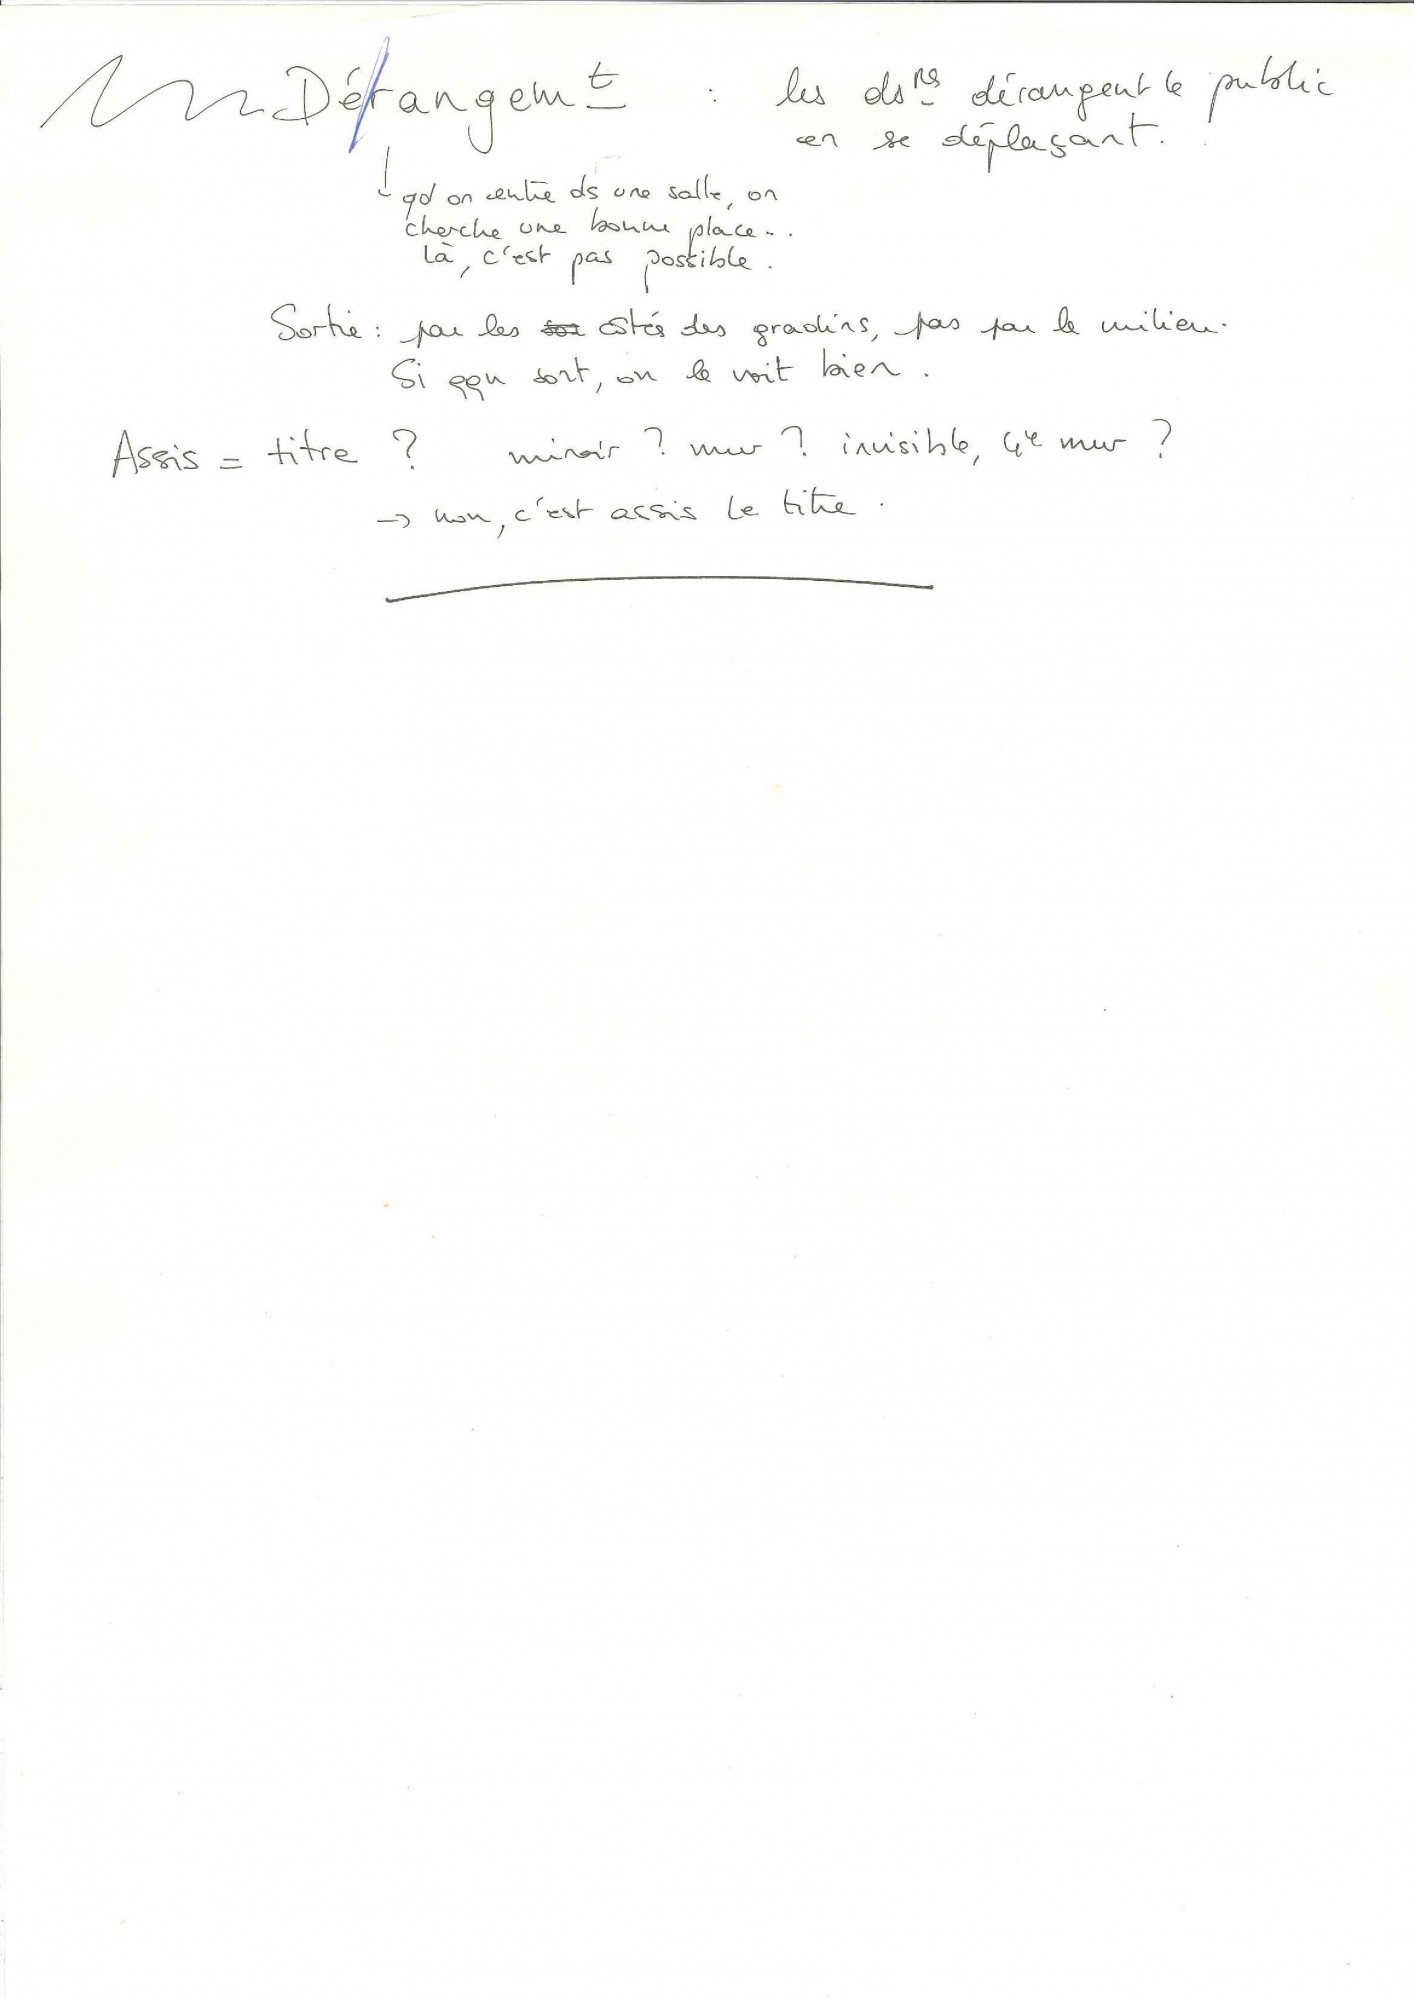 Dérangemt : les dsrs dérangent le public
en se déplaçant.
qd on entre ds une salle, on
cherche une bonne place...
là, c'est pas possible.
Sortie : par les côtés des gradins, pas par le milieu.
Si qqn sort, on le voit bien.
Assis = titre ? miroir ? mur ? invisible, 4e mur ?
→ non, c'est assis le titre.